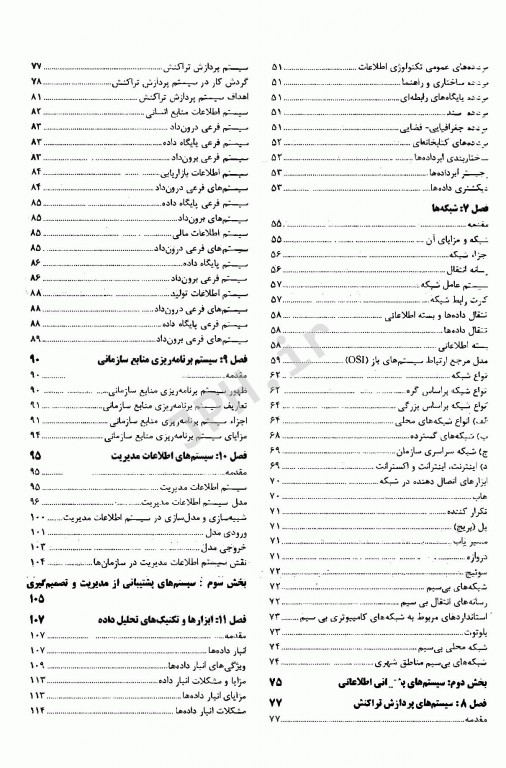 برداده‌های عمومی تکنولوژی اطلاعات ۵۱
برداده ساختاری و راهنما ۵۱
برداده پایگاه‌های رابطه‌ای ۵۱
برداده سند ۵۱
برداده جغرافیایی- فضایی ۵۱
برداده‌های کتابخانه‌ای ۵۲
ساختاربندی ابرداده‌ها ۵۲
رجیستر ابرداده‌ها ۵۳
دیکشنری داده‌ها ۵۳
فصل ۷: شبکه‌ها
مقدمه ۵۵
شبکه و مزایای آن ۵۵
اجزاء شبکه ۵۶
رسانه انتقال ۵۶
سیستم عامل شبکه ۵۷
کارت رابط شبکه ۵۷
انتقال داده‌ها و بسته اطلاعاتی ۵۸
انتقال داده‌ها ۵۸
بسته اطلاعاتی ۵۸
مدل مرجع ارتباط سیستم‌های باز (OSI) ۵۹
انواع شبکه ۶۲
انواع شبکه براساس گره ۶۲
انواع شبکه براساس بزرگی ۶۴
الف) انواع شبکه‌های محلی ۶۴
ب) شبکه‌های گسترده ۶۸
ج) شبکه سراسری سازمان ۶۹
د) اینترنت، اینترانت و اکسترانت ۶۹
ابزارهای اتصال دهنده در شبکه ۷۰
هاب ۷۰
تکرار کننده ۷۱
پل (بریج) ۷۱
مسیر یاب ۷۱
دروازه ۷۱
سوئیچ ۷۲
شبکه‌های بی‌سیم ۷۲
رسانه‌های انتقال بی سیم ۷۲
استانداردهای مربوط به شبکه‌های کامپیوتری بی سیم ۷۳
بلوتوث ۷۳
شبکه محلی بی‌سیم ۷۴
شبکه‌های بی‌سیم مناطق شهری ۷۴
بخش دوم: سیستم‌های اطلاعاتی ۷۵
فصل ۸: سیستم‌های پردازش تراکنش ۷۷
مقدمه ۷۷
سیستم پردازش تراکنش ۷۷
گردش کار در سیستم پردازش تراکنش ۷۸
اهداف سیستم پردازش تراکنش ۸۱
سیستم اطلاعات منابع انسانی ۸۲
سیستم فرعی درون‌داد ۸۳
سیستم فرعی پایگاه داده ۸۳
سیستم فرعی برون‌داد ۸۳
سیستم اطلاعات بازاریابی ۸۴
سیستم‌های فرعی درون‌داد ۸۴
سیستم فرعی پایگاه داده ۸۵
سیستم‌های برون‌داد ۸۵
سیستم اطلاعات مالی ۸۵
سیستم‌های فرعی درون‌داد ۸۵
سیستم پایگاه داده ۸۶
سیستم فرعی برون‌داد ۸۶
سیستم اطلاعات تولید ۸۸
سیستم‌های فرعی درون‌داد ۸۸
سیستم فرعی پایگاه داده ۸۸
سیستم‌های فرعی برون‌داد ۸۹
فصل ۹: سیستم برنامه‌ریزی منابع سازمانی ۹۰
مقدمه ۹۰
ظهور سیستم برنامه‌ریزی منابع سازمانی ۹۰
تعاریف سیستم برنامه‌ریزی منابع سازمانی ۹۱
اجزاء سیستم برنامه‌ریزی منابع سازمانی ۹۱
مزایای سیستم برنامه‌ریزی منابع سازمانی ۹۴
فصل ۱۰: سیستم‌های اطلاعات مدیریت ۹۵
مقدمه ۹۵
سیستم اطلاعات مدیریت ۹۵
مدل سیستم اطلاعات مدیریت ۹۶
شبیه‌سازی و مدل‌سازی در سیستم اطلاعات مدیریت ۱۰۰
ورودی مدل ۱۰۱
خروجی مدل ۱۰۳
نقش سیستم اطلاعات مدیریت در سازمان‌ها ۱۰۴
بخش سوم : سیستم‌های پشتیبانی از مدیریت و تصمیم‌گیری
۱۰۵
فصل ۱۱: ابزارها و تکنیک‌های تحلیل داده ۱۰۷
مقدمه ۱۰۷
انبار داده‌ها ۱۰۷
ویژگی‌های انبار داده‌ها ۱۰۹
مزایا و مشکلات انبار داده ۱۱۳
مزایای انبار داده‌ها ۱۱۳
مشکلات انبار داده‌ها ۱۱۴